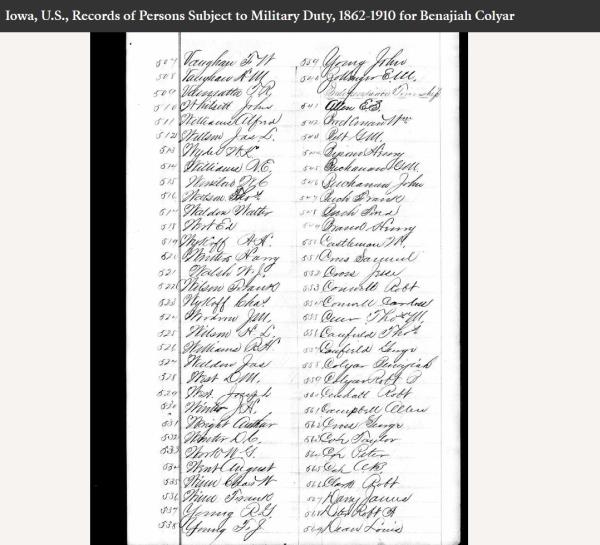 Iowa, U.S., Records of Persons Subject to Military Duty, 1862-1910 for Benajiah Colyar
507 Vaughan F W
508 Vaughan H M
509
510 Whitsitt John
511 Williams Alfred
512 Willson Jas L.
513 Wyder W K
514 Williams W. E.
515 Winslow
516 Watson Thos
517 Waldon Walter
518 West Ed
519 Wykoff A. H.
520 Winter Harry
521 Walsh W. J.
522 Wilson Frank
523 Wykoff Chas
524 J. M.
525 Wilson H. L.
526 Williams R. H
527 Weldon Jas
528 West D. M.
529 West Joseph
530 Winter J. H.
531 Wright Arthur
532 Winter D. C.
533 Work W. G.
534 Went August
535 Winn Chas W
536 Winn Frank
537 Young R. G.
538 Young F. J.
539 Young John
540 E. M.
Independence Township
541 Allen E. S.
542 Wm
543 Belt G. M.
544 Henry
545 Buchanan M.
546 Buchanan John
547 Bush Frank
548 Bush Ford
549 Brand Henry
550 Castleman W.
551 Cross Samuel
552 Cross Jesse
553 Connell Robt
554 Connell
555 Thos M.
556 Caufield Thos
557 Caufield George
558 Colyar Benajiah
559 Colyar Robt P
560 Robt
561 Campbell Allen
562 Cross George
563 Cox Taylor
564 Cox Peter
565 Cox
566 Clark Robt
567 James
568 Robt
569 Dean Louis